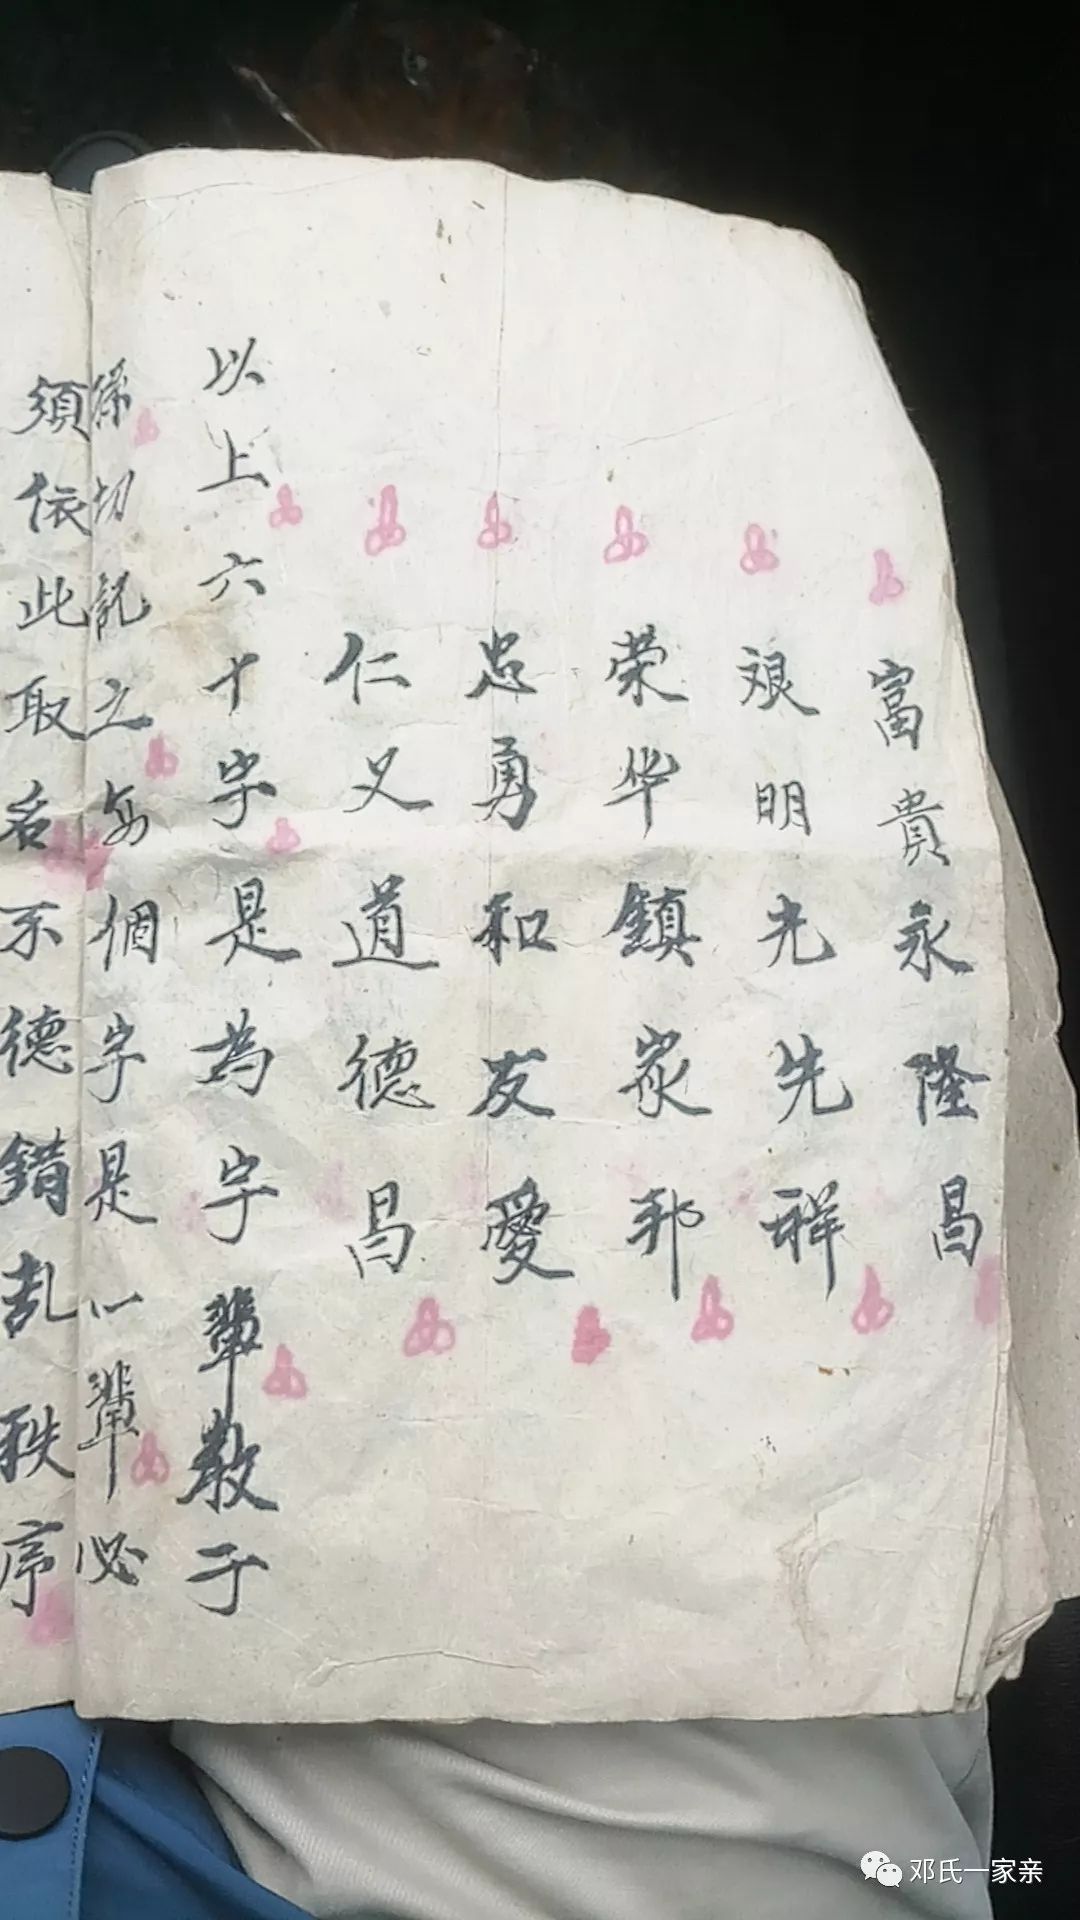 富貴永隆昌
朗明光先祥
荣华鎮家邦
忠勇和友愛
仁义道德昌
以上六十字是為字輩教于
孫切記之每個字是一輩必
須依此取名不德錯乱秩序
邓氏一家亲